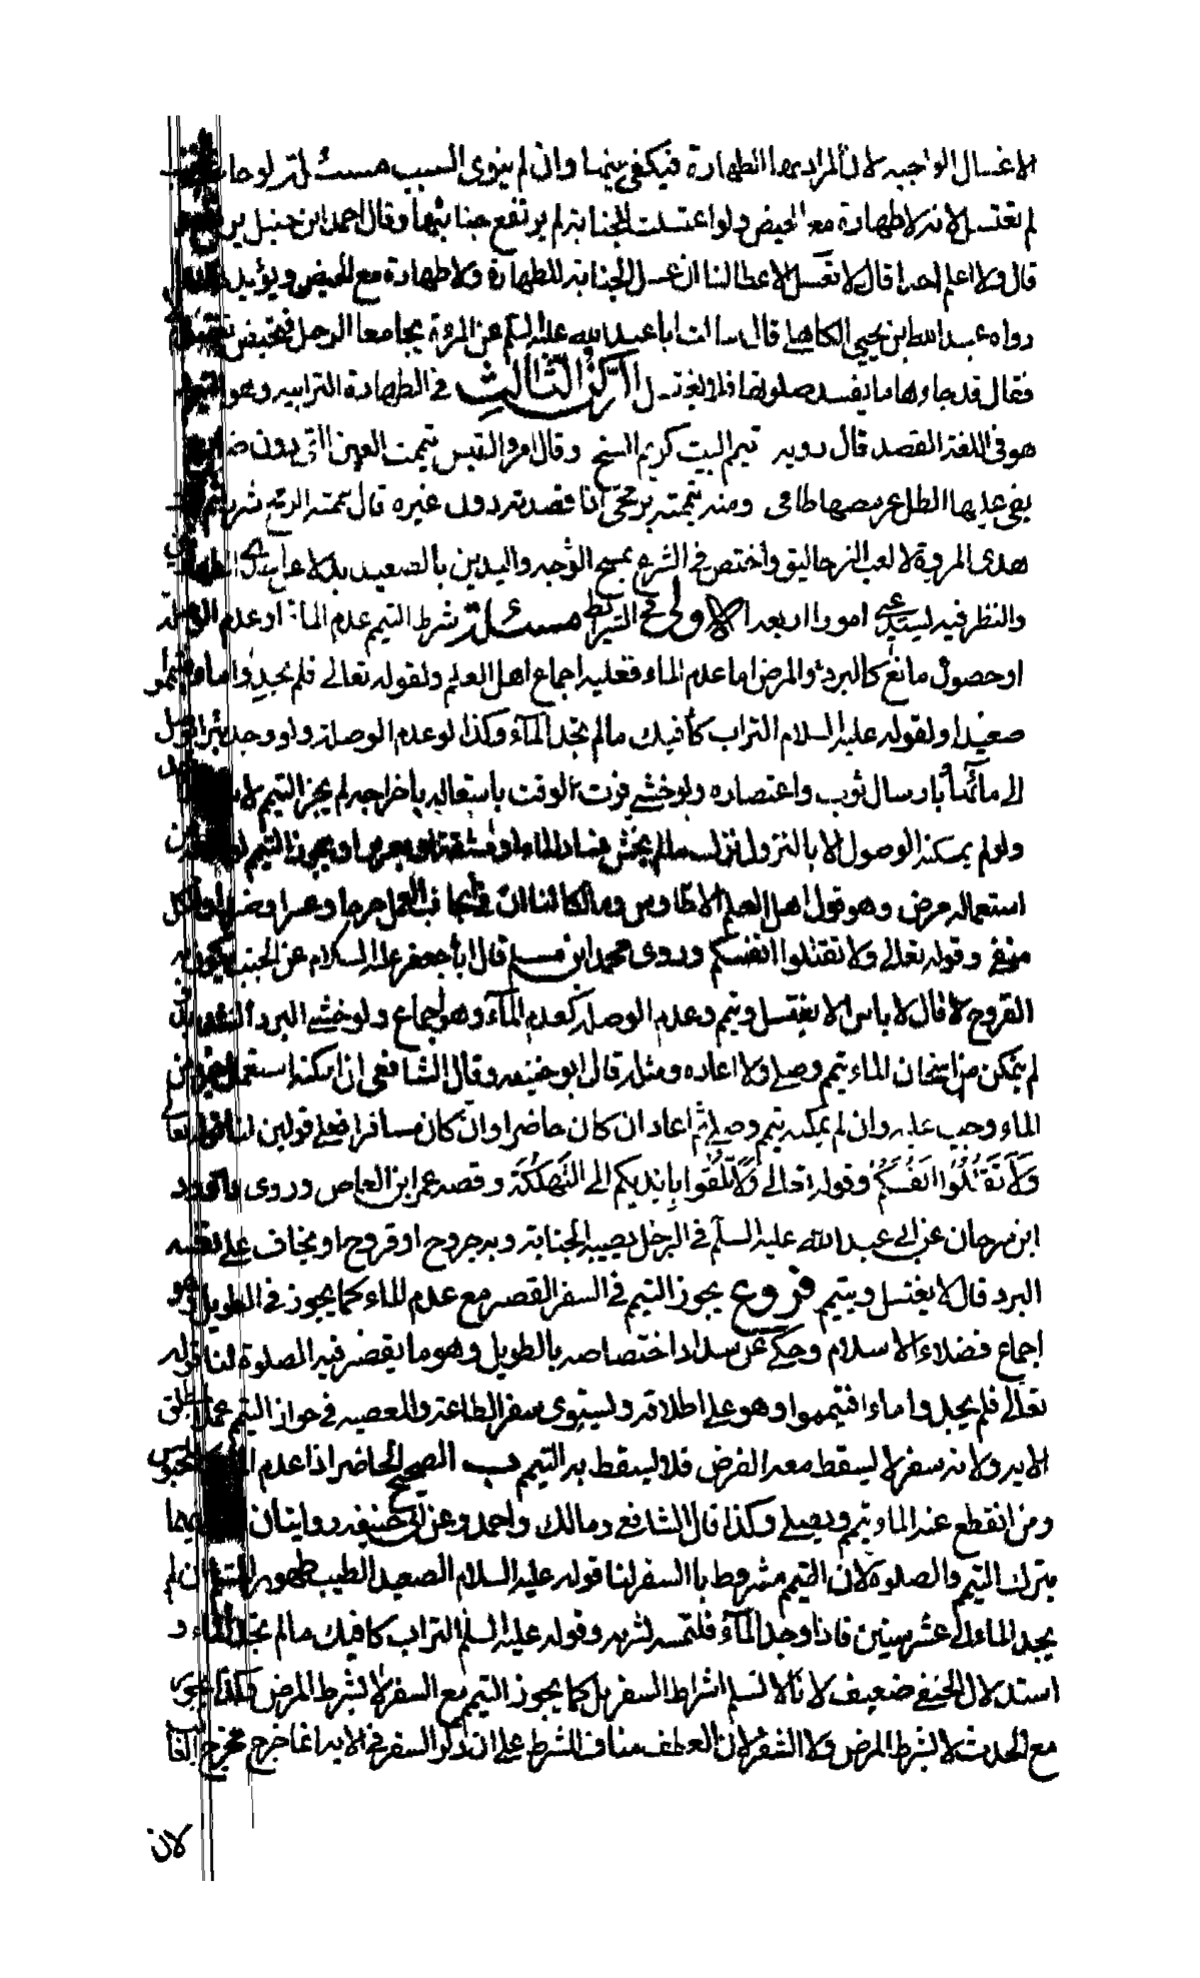 الاغسال الواجبه لان المراد بها الطهارة فيكفى نيتها وان لم ينوى السبب مسئلة لو حاضت
لم تغتسل لانه لا طهارة مع الحيض ولو اغتسلت للجنابة لم يرتفع جنابتها وقال احمد ابن حنبل
قال ولا اعلم احدا قال لا تغتسل الا عطا لنا ان غسل الجنابة للطهارة ولا طهارة مع الحيض ويؤيد
رواه عبد الله ابن يحيى الكاهلى قال سالت ابا عبد الله عليه السلم عن المرءة يجامعها الرجل فتحيض
فقال قد جاءها ما يفسد صلوتها فلا تغتسل الركن الثالث فى الطهارة الترابيه وهو التيمم
هو فى اللغة القصد قال رويه تيمم البيت كريم السنح وقال امرو القيس تيممت العين التى دون
يفى عليها الطل عرمصها طامى ومنه تيممته برمحى اذا قصدته دون غيره قال يممته الرمح شزرا ثم
هذى المروة لا لعب الزحاليق واختص فى الشرع بمسح الوجه واليدين بالصعيد بدلا عن
والنظر فيه يستدعى امورا اربعه الاولى فى الشرايط مسئلة شرط التيمم عدم الماء او عدم
او حصول مانع كالبرد والمرض اما عدم الماء فعليه اجماع اهل العلم ولقوله تعالى فلم تجدوا ماء فتيمموا
صعيدا ولقوله عليه السلام التراب كافيك مالم تجد الماء وكذا لو عدم الوصلة ولو وجد بئرا توصل
الى مائها بارسال ثوب واعتصاره ولو خشى فوت الوقت باستعاله باخراجه لم يجز التيمم
ولو لم يمكنه الوصول الا بالنزول نزل مالم يخش فساد الماء او مشقة او يجوز التيمم
استعماله مرض وهو قول اهل العلم الا طاوس ومالكا لنا ان فى ايجاب الغسل حرجا وعسرا وضررا والكل
منفى وقوله تعالى ولا تقتلوا انفسكم وروى محمد ابن مسلم قال ابا جعفر عليه السلام عن الجنب يكون به
القروح لا قال لا باس الا يغتسل ويتيمم وعدم الوصلة كعدم الماء وهو اجماع ولو خشى البرد
لم يتمكن من اسخان الماء تيمم وصلى ولا اعاده ومثله قال ابو حنيفه وقال الشافعى ان امكنه استعمال
الماء وجب عليه وان لم يمكنه تيمم وصلى ثم اعاد ان كان حاضرا وان كان مسافرا فعلى قولين لنا قوله تعا
ولا تقتلوا انفسكم وقوله تعالى ولا تلقوا بايديكم الى التهلكة وقصه عمر ابن العاص وروى داود
ابن سرحان عن ابى عبد الله عليه السلم فى الرجل يصيبه الجنابة وبه جروح او قروح او يخاف على نفسه
البرد قال لا يغتسل ويتيمم فروع يجوز التيمم فى السفر القصير مع عدم الماء كما يجوز فى الطويل وهو
اجماع فضلاء الاسلام وحكى عن شداد اختصاصه بالطويل وهو ما يقصر فيه الصلوة لنا قوله
تعالى فلم تجدوا ماء فتيمموا وهو على اطلاقه ويستوى سفر الطاعة والمعصيه فى جواز التيمم عملا بمطلق
الايه ولانه سفر لا يسقط معه الفرض فلا يسقط به التيمم ب الصحيح الحاضر اذا عدم الماء كالمحبوس
ومن انقطع عنه الماء تيمم ويصلى وكذا قال الشافعى ومالك واحمد وعن ابى حنيفه روايتان
بترك التيمم والصلوة لان التيمم مشروط باالسفر لنا قوله عليه السلام الصعيد الطيب طهور المسلم ان لم
يجد الماء الى عشر سنين فاذا وجد الماء فلتمسه بشرته وقوله عليه السلم التراب كافيك مالم تجد الماء و
استدلال الحنفى ضعيف لانا لا نسلم اشتراط السفر بل كما يجوز التيمم مع السفر لا بشرط المرض فكذا يجوز
مع الحدث لا بشرط المرض ولا السفر لان العطف مناف للشرط على ان ذكر السفر فى الايه انما خرج مخرج الغالب
لان